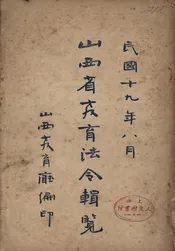 民國十九年八月
山西省教育法令輯覽
山西教育廳編印